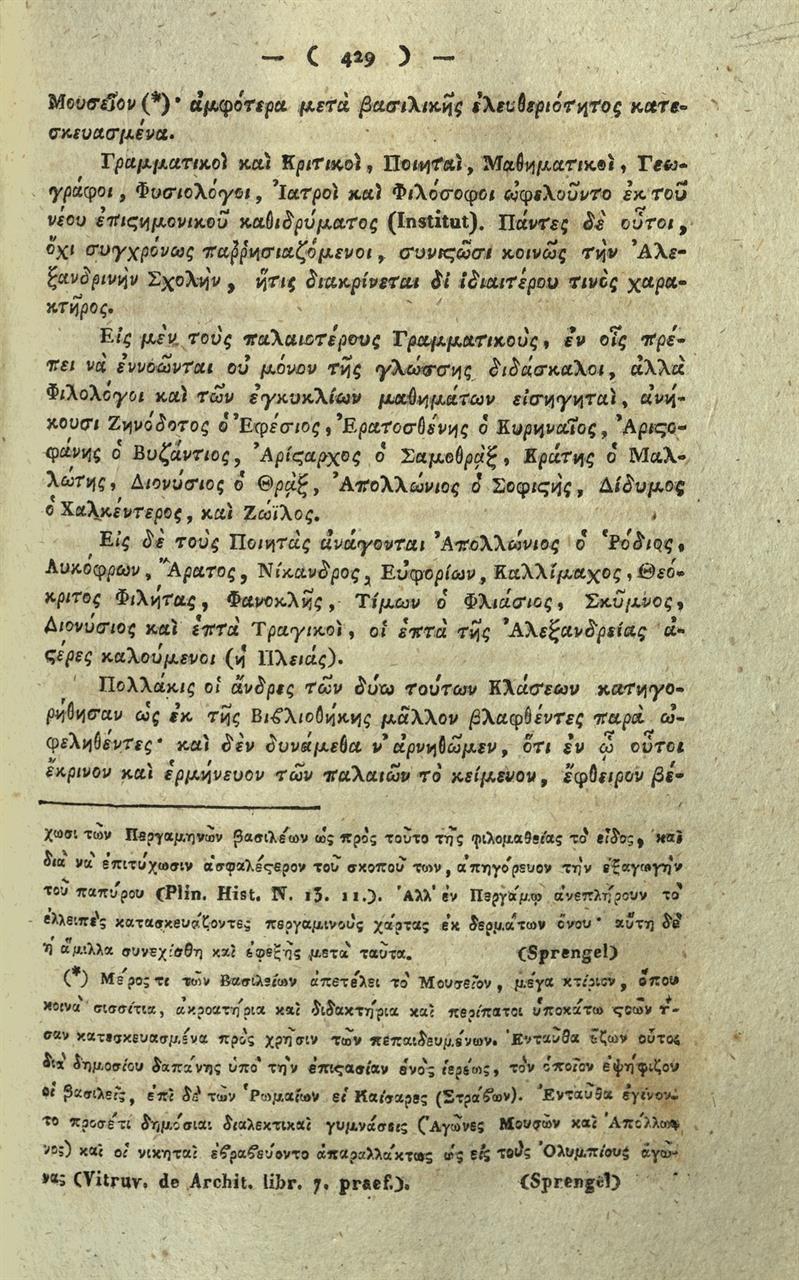 — ( 429 ) —
Μουσεῖον (*)· ἀμφότερα μετὰ βασιλικῆς ἐλευθεριότητος κατε-
σκευασμένα.
Γραμματικοὶ καὶ Κριτικοὶ, Ποιηταὶ, Μαθηματικοὶ, Γεω-
γράφοι, Φυσιολόγοι, Ἰατροὶ καὶ Φιλόσοφοι ὠφελοῦντο ἐκ τοῦ
νέου ἐπιςημονικοῦ καθιδρύματος (Institut). Πάντες δὲ οὗτοι,
ὄχι συγχρόνως παῤῥησιαζόμενοι, συνιςῶσι κοινῶς τὴν Ἀλε-
ξανδρινὴν Σχολὴν, ἥτις διακρίνεται δἰ ἰδιαιτέρου τινὸς χαρα-
κτῆρος.
Εἰς μὲν τοὺς παλαιοτέρους Γραμματικοὺς, ἐν οἷς πρέ-
πει νὰ ἐννοῶνται οὐ μόνον τῆς γλώσσης διδάσκαλοι, ἀλλὰ
Φιλολόγοι καὶ τῶν ἐγκυκλίων μαθημάτων εἰσηγηταὶ, ἀνή-
κουσι Ζηνόδοτος ὁ Ἐφέσιος, Ἐρατοσθένης ὁ Κυρηναῖος, Ἀριςο-
φάνης ὁ Βυζάντιος, Ἀρίςαρχος ὁ Σαμοθρᾲξ, Κράτης ὁ Μαλ-
λώτης, Διονύσιος ὁ Θρᾲξ, Ἀπολλώνιος ὁ Σοφιςὴς, Δίδυμος
ὁ Χαλκέντερος, καὶ Ζωΐλος.
Εἰς δὲ τοὺς Ποιητὰς ἀνάγονται Ἀπολλώνιος ὁ Ῥόδιος,
Λυκόφρων, Ἄρατος, Νίκανδρος, Εὐφορίων, Καλλίμαχος, Θεό-
κριτος Φιλήτας, Φανοκλῆς, Τίμων ὁ Φλιάσιος, Σκῦμνος,
Διονύσιος καὶ ἑπτὰ Τραγικοὶ, οἱ ἑπτὰ τῆς Ἀλεξανδρείας ἀ-
ςέρες καλούμενοι (ἡ Πλειάς).
Πολλάκις οἱ ἄνδρες τῶν δύω τούτων Κλάσεων κατηγο-
ρήθησαν ὡς ἐκ τῆς Βιβλιοθήκης μᾶλλον βλαφθέντες παρὰ ὠ-
φεληθέντες· καὶ δὲν δυνάμεθα ν' ἀρνηθῶμεν, ὅτι ἐν ᾧ οὗτοι
ἔκρινον καὶ ἑρμήνευον τῶν παλαιῶν τὸ κείμενον, ἔφθειρον βέ-
χωσι τῶν Περγαμηνῶν βασιλέων ὡς πρὸς τοῦτο τῆς φιλομαθείας τὸ εἶδος, καὶ
διὰ νὰ ἐπιτύχωσιν ἀσφαλέςερον τοῦ σκοποῦ των, ἀπηγόρευον τὴν ἐξαγωγὴν
τοῦ παπύρου (Plin. Hist. N. 13. 11.). Ἀλλ' ἐν Περγάμῳ ἀνεπλήρουν τὸ
ἐλλειπὲς κατασκευάζοντες περγαμινοὺς χάρτας ἐκ δερμάτων ὄνου· αὕτη δὲ
ἡ ἅμιλλα συνεχίσθη καὶ ἐφεξῆς μετὰ ταῦτα. (Sprengel)
(*) Μέρος τι τῶν Βασιλείων ἀπετέλει τὸ Μουσεῖον, μέγα κτίριον, ὅπου
κοινὰ σισσίτια, ἀκροατήρια καὶ διδακτήρια καὶ περίπατοι ὑποκάτω ςοῶν ἦ-
σαν κατεσκευασμένα πρὸς χρῆσιν τῶν πεπαιδευμένων. Ἐνταῦθα ἔζων οὗτοι
διὰ δημοσίου δαπάνης ὑπὸ τὴν ἐπιςασίαν ἑνὸς ἱερέως, τὸν ὁποῖον ἐψήφιζον
οἱ βασιλεῖς, ἐπὶ δὲ τῶν Ῥωμαίων οἱ Καίσαρες (Στράβων). Ἐνταῦθα ἐγίνον-
το προσέτι δημόσιαι διαλεκτικαὶ γυμνάσεις (Ἀγῶνες Μουσῶν καὶ Ἀπόλλω-
νος) καὶ οἱ νικηταὶ ἐβραβεύοντο ἀπαραλλάκτως ὡς εἰς τοὺς Ὀλυμπίους ἀγῶ-
νας (Vitruv. de Archit. libr. 7. praef.). (Sprengel)